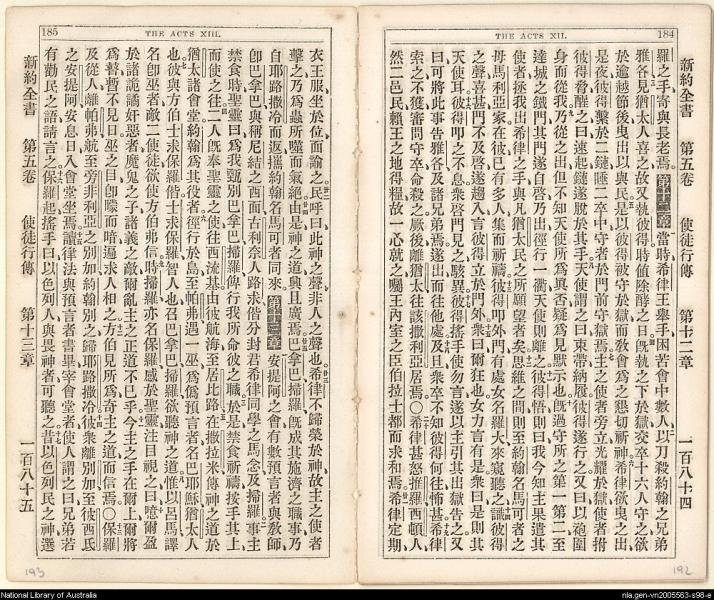 184
THE ACTS XII.
新約全書 第五卷 使徒行傳 第十二章 一百八十四
羅之手寄與長老焉第十二章當時希律王舉手困苦會中數人以刀殺約翰之兄弟
雅各見猶太人喜之故又執彼得時値除酵之日旣執之下於獄交卒十六人守之欲
於逾越節後曳出以與民是以彼得被守於獄而敎會爲之懇切祈神希律欲曳之出
是夜彼得繫於二鏈睡二卒中守者於門前守獄焉主之使者旁立光耀於獄使者拊
彼得脅醒之曰速起鏈遂脫於其手天使謂之曰束帶納履彼得遂行之又曰以袍圍
身而從我乃從之出但不知天使所爲眞否疑爲見默示也旣過守所之第一第二至
達城之鐵門其門遂自啓乃出徑行一衢天使則離之彼得悟則曰我今知主果遣其
使者拯我出希律之手與凡猶太民之所願望者矣思維之間則至約翰名馬可者之
母馬利亞家在彼已有多人集而祈禱彼得叩外門有處女名羅大來竊聽之識彼得
之聲喜甚門不及啓遂趨入言彼得立於門外衆曰爾狂也女力言有是衆曰是則其
天使耳彼得叩之不息衆啓門見之駭異彼得搖手使勿言遂以主引其出獄告之又
曰可將此事告雅各及諸兄弟焉遂出而往他處及旦衆卒不知彼得何往怖甚希律
索之不獲審問守卒命殺之厥後離猶太往該撒利亞居焉○希律甚怒推羅西頓人
然二邑民賴王之地得糧故一心就之囑王內室之臣伯拉士都而求和焉希律定期
192
185
THE ACTS XIII.
衣王服坐於位而諭之民呼曰此神之聲非人之聲也希律不歸榮於神故主之使者
擊之乃爲蟲所噬而氣絕由是神之道興且廣焉巴拿巴掃羅旣成其施濟之職事乃
自耶路撒冷而返攜約翰名馬可者同來第十三章安提阿之會有數預言者與敎師
卽巴拿巴與稱尼結之西面古利奈人路求偕分封君希律同學之馬念及掃羅事主
禁食時聖靈曰爲我甄別巴拿巴掃羅俾行我所命彼之職於是禁食祈禱按手其上
而使之往二人旣奉聖靈之使往西流基由彼航海至居比路在撒拉米傳神之道於
猶太諸會堂約翰爲其役者徑行於島至帕弗遇一巫爲僞預言者名巴耶穌猶太人
也彼與方伯士求保羅偕士求保羅智人也召巴拿巴掃羅欲聽神之道惟以呂馬譯
名卽巫者敵二使徒欲使方伯弗信時掃羅亦名保羅感於聖靈注目視之曰噫爾盈
於諸詭譎奸惡者魔鬼之子諸義之敵爾亂主之正道不已乎今主之手在爾上爾將
爲瞽暫不見日巫之目卽矇而暗遍求人相之方伯見所爲奇主之道而信焉○保羅
及從人離帕弗航至旁非利亞之別加約翰別之歸耶路撒冷彼衆離別加至彼西氐
之安提阿安息日入會堂坐焉讀律法與預言者書畢宰會堂者使人謂之曰兄弟若
有勸民之語請言之保羅起搖手曰以色列人與畏神者可聽之昔以色列民之神選
新約全書 第五卷 使徒行傳 第十三章 一百八十五
193
National Library of Australia
nla.gen-vn2005563-s98-e